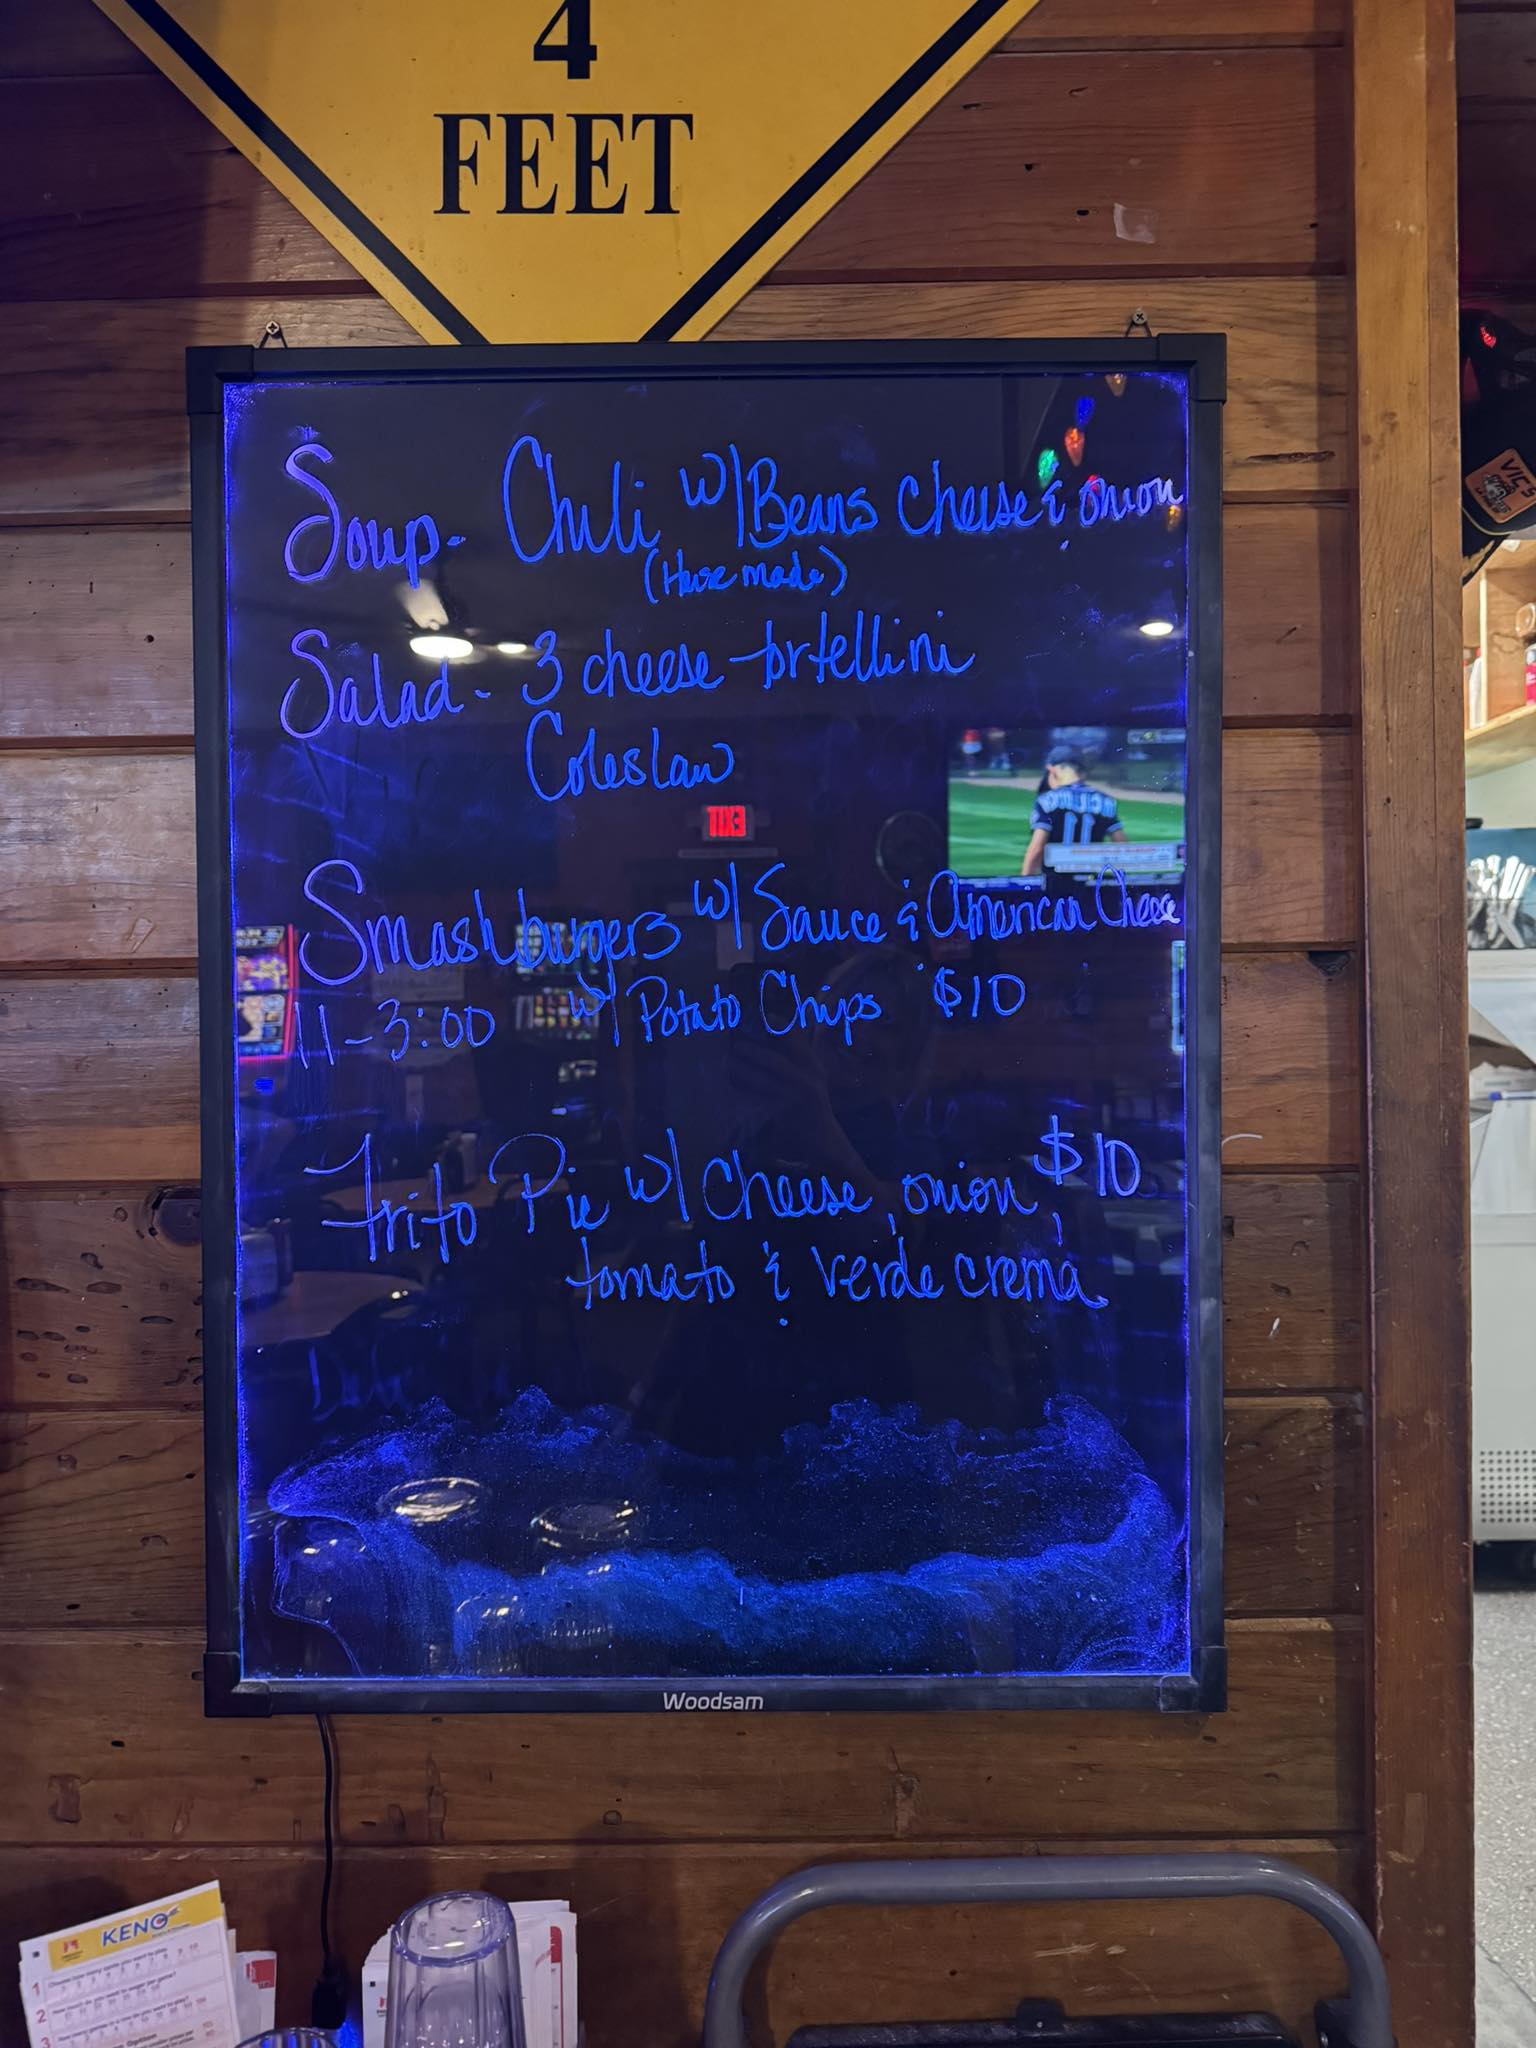 4
FEET
Soup - Chili w/ Beans cheese & onion
(House made)
Salad - 3 cheese tortellini
Coleslaw
EXIT
11
Smashburgers w/ Sauce & American Cheese
11-3:00 w/ Potato Chips $10
Frito Pie w/ Cheese, onion, $10
tomato & verde crema
Woodsam
VIC'S
KENO
1
2
3